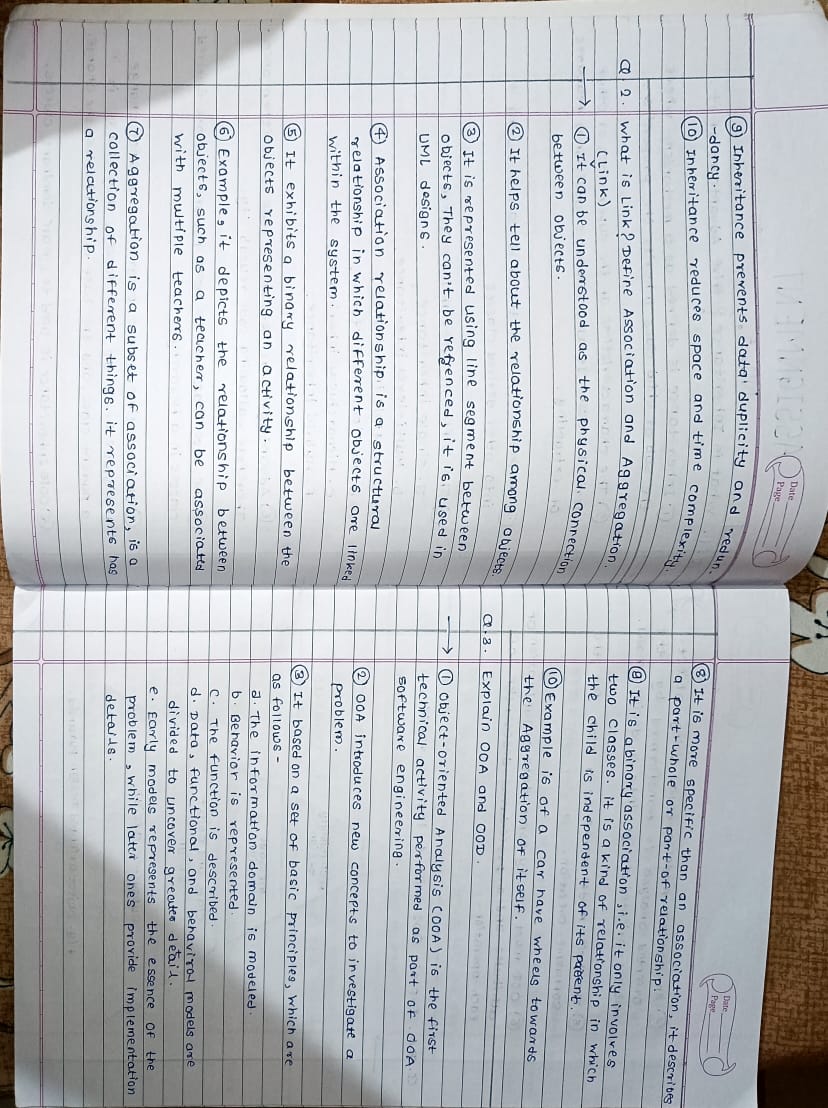 Date
Page
⑨ Inheritance prevents data duplicity and redun-
-dancy.
⑩ Inheritance reduces space and time complexity.
Q 2. What is Link? Define Association and Aggregation.
(Link)
→ ① It can be understood as the physical connection
between objects.
② It helps tell about the relationship among objects.
③ It is represented using line segment between
objects, They can't be refrenced, it is used in
UML designs.
④ Association relationship is a structural
relationship in which different objects are linked
within the system.
⑤ It exhibits a binary relationship between the
objects representing an activity.
⑥ Example, it depicts the relationship between
objects, such as a teacher, can be associated
with multiple teachers.
⑦ Aggregation is a subset of association, is a
collection of different things. it represents has
a relationship.
Date
Page
⑧ It is more specific than an association, it describes
a part-whole or part-of relationship.
⑨ It is a binary association, i.e. it only involves
two classes. it is a kind of relationship in which
the child is independent of its parent.
⑩ Example is of a car have wheels towards
the Aggregation of itself.
Q.3. Explain OOA and OOD.
→ ① Object-oriented Analysis (OOA) is the first
technical activity performed as part of OOA
software engineering.
② OOA introduces new concepts to investigate a
problem.
③ It based on a set of basic principles, which are
as follows -
a. The information domain is modeled.
b. Behavior is represented.
c. The function is described.
d. Data, functional, and behavioral models are
divided to uncover greater detail.
e. Early models represents the essence of the
problem, while later ones provide implementation
details.